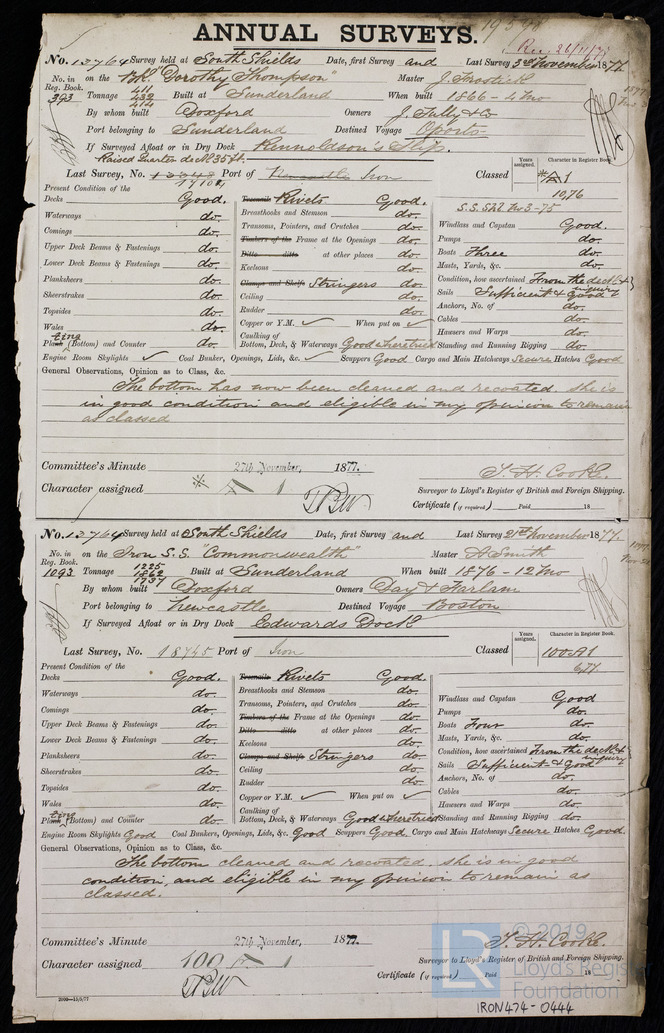 ANNUAL SURVEYS.
Rec. 26/11/77
No. 13764 Survey held at South Shields Date, first Survey and Last Survey 3rd November 1877.
No. in Reg. Book. 393 on the Bk. "Dorothy Thompson" Master J. Frostick
Tonnage 411 432 414 Built at Sunderland When built 1866 - 2 Mo
By whom built Doxford Owners J. Tully & Co
Port belonging to Sunderland Destined Voyage Oporto
If Surveyed Afloat or in Dry Dock Rennoldson's Slip.
Raised Quarter deck 35 ft.
Last Survey, No. Port of Iron Classed Years assigned. Character in Register Book. *A1
10,76
Present Condition of the
Decks Good. Rivets Good. S.S. No 3-75
Waterways do. Breasthooks and Stemson do. Windlass and Capstan Good.
Comings do. Transoms, Pointers, and Crutches do. Pumps do.
Upper Deck Beams & Fastenings do. Timbers of the Frame at the Openings do. Boats Three do.
Lower Deck Beams & Fastenings do. Ditto ditto at other places do. Masts, Yards, &c. do.
Planksheers do. Keelsons do. Condition, how ascertained From the deck & inquiry
Sheerstrakes do. Clamps and Shelfs Stringers do. Sails Sufficient & Good
Topsides do. Ceiling do. Anchors, No. of do.
Wales do. Rudder do. Cables do.
Copper or Y.M. ✓ When put on ✓ Hawsers and Warps do.
Plank (Bottom) and Counter do. Caulking of Bottom, Deck, & Waterways Good Standing and Running Rigging do.
Engine Room Skylights ✓ Coal Bunker, Openings, Lids, &c. ✓ Scuppers Good Cargo and Main Hatchways Secure Hatches Good
General Observations, Opinion as to Class, &c.
The bottom has now been cleaned and recoated. She is
in good condition and eligible in my opinion to remain
as classed
Committee's Minute 27th November, 1877.
T. H. Cooke.
Character assigned * A 1
Surveyor to Lloyd's Register of British and Foreign Shipping.
Certificate (if required) Paid 18
No. 13764 Survey held at South Shields Date, first Survey and Last Survey 21st November 1877.
No. in Reg. Book. 1093 on the Iron S.S. "Commonwealth" Master A. Smith
Tonnage 1225 1862 1737 Built at Sunderland When built 1876 - 12 Mo
By whom built Doxford Owners Day & Harlam
Port belonging to Newcastle Destined Voyage Boston
If Surveyed Afloat or in Dry Dock Edwards Dock
Last Survey, No. 18745 Port of Iron Classed Years assigned. Character in Register Book. 100 A1
6,77
Present Condition of the
Decks Good. Rivets Good.
Waterways do. Breasthooks and Stemson do. Windlass and Capstan Good
Comings do. Transoms, Pointers, and Crutches do. Pumps do.
Upper Deck Beams & Fastenings do. Timbers of the Frame at the Openings do. Boats Four do.
Lower Deck Beams & Fastenings do. Ditto ditto at other places do. Masts, Yards, &c. do.
Planksheers do. Keelsons do. Condition, how ascertained From the deck & inquiry
Sheerstrakes do. Clamps and Shelfs Stringers do. Sails Sufficient & Good
Topsides do. Ceiling do. Anchors, No. of do.
Wales do. Rudder do. Cables do.
Copper or Y.M. ✓ When put on ✓ Hawsers and Warps do.
Plank (Bottom) and Counter do. Caulking of Bottom, Deck, & Waterways Good Standing and Running Rigging do.
Engine Room Skylights Good Coal Bunkers, Openings, Lids, &c. Good Scuppers Good Cargo and Main Hatchways Secure Hatches Good.
General Observations, Opinion as to Class, &c.
The bottom cleaned and recoated. She is in good
condition, and eligible in my opinion to remain as
classed.
Committee's Minute 27th November, 1877.
T. H. Cooke.
Character assigned 100 A 1
Surveyor to Lloyd's Register of British and Foreign Shipping.
Certificate (if required) Paid 18
© 2019
Lloyd's Register
Foundation
IRON474-0444